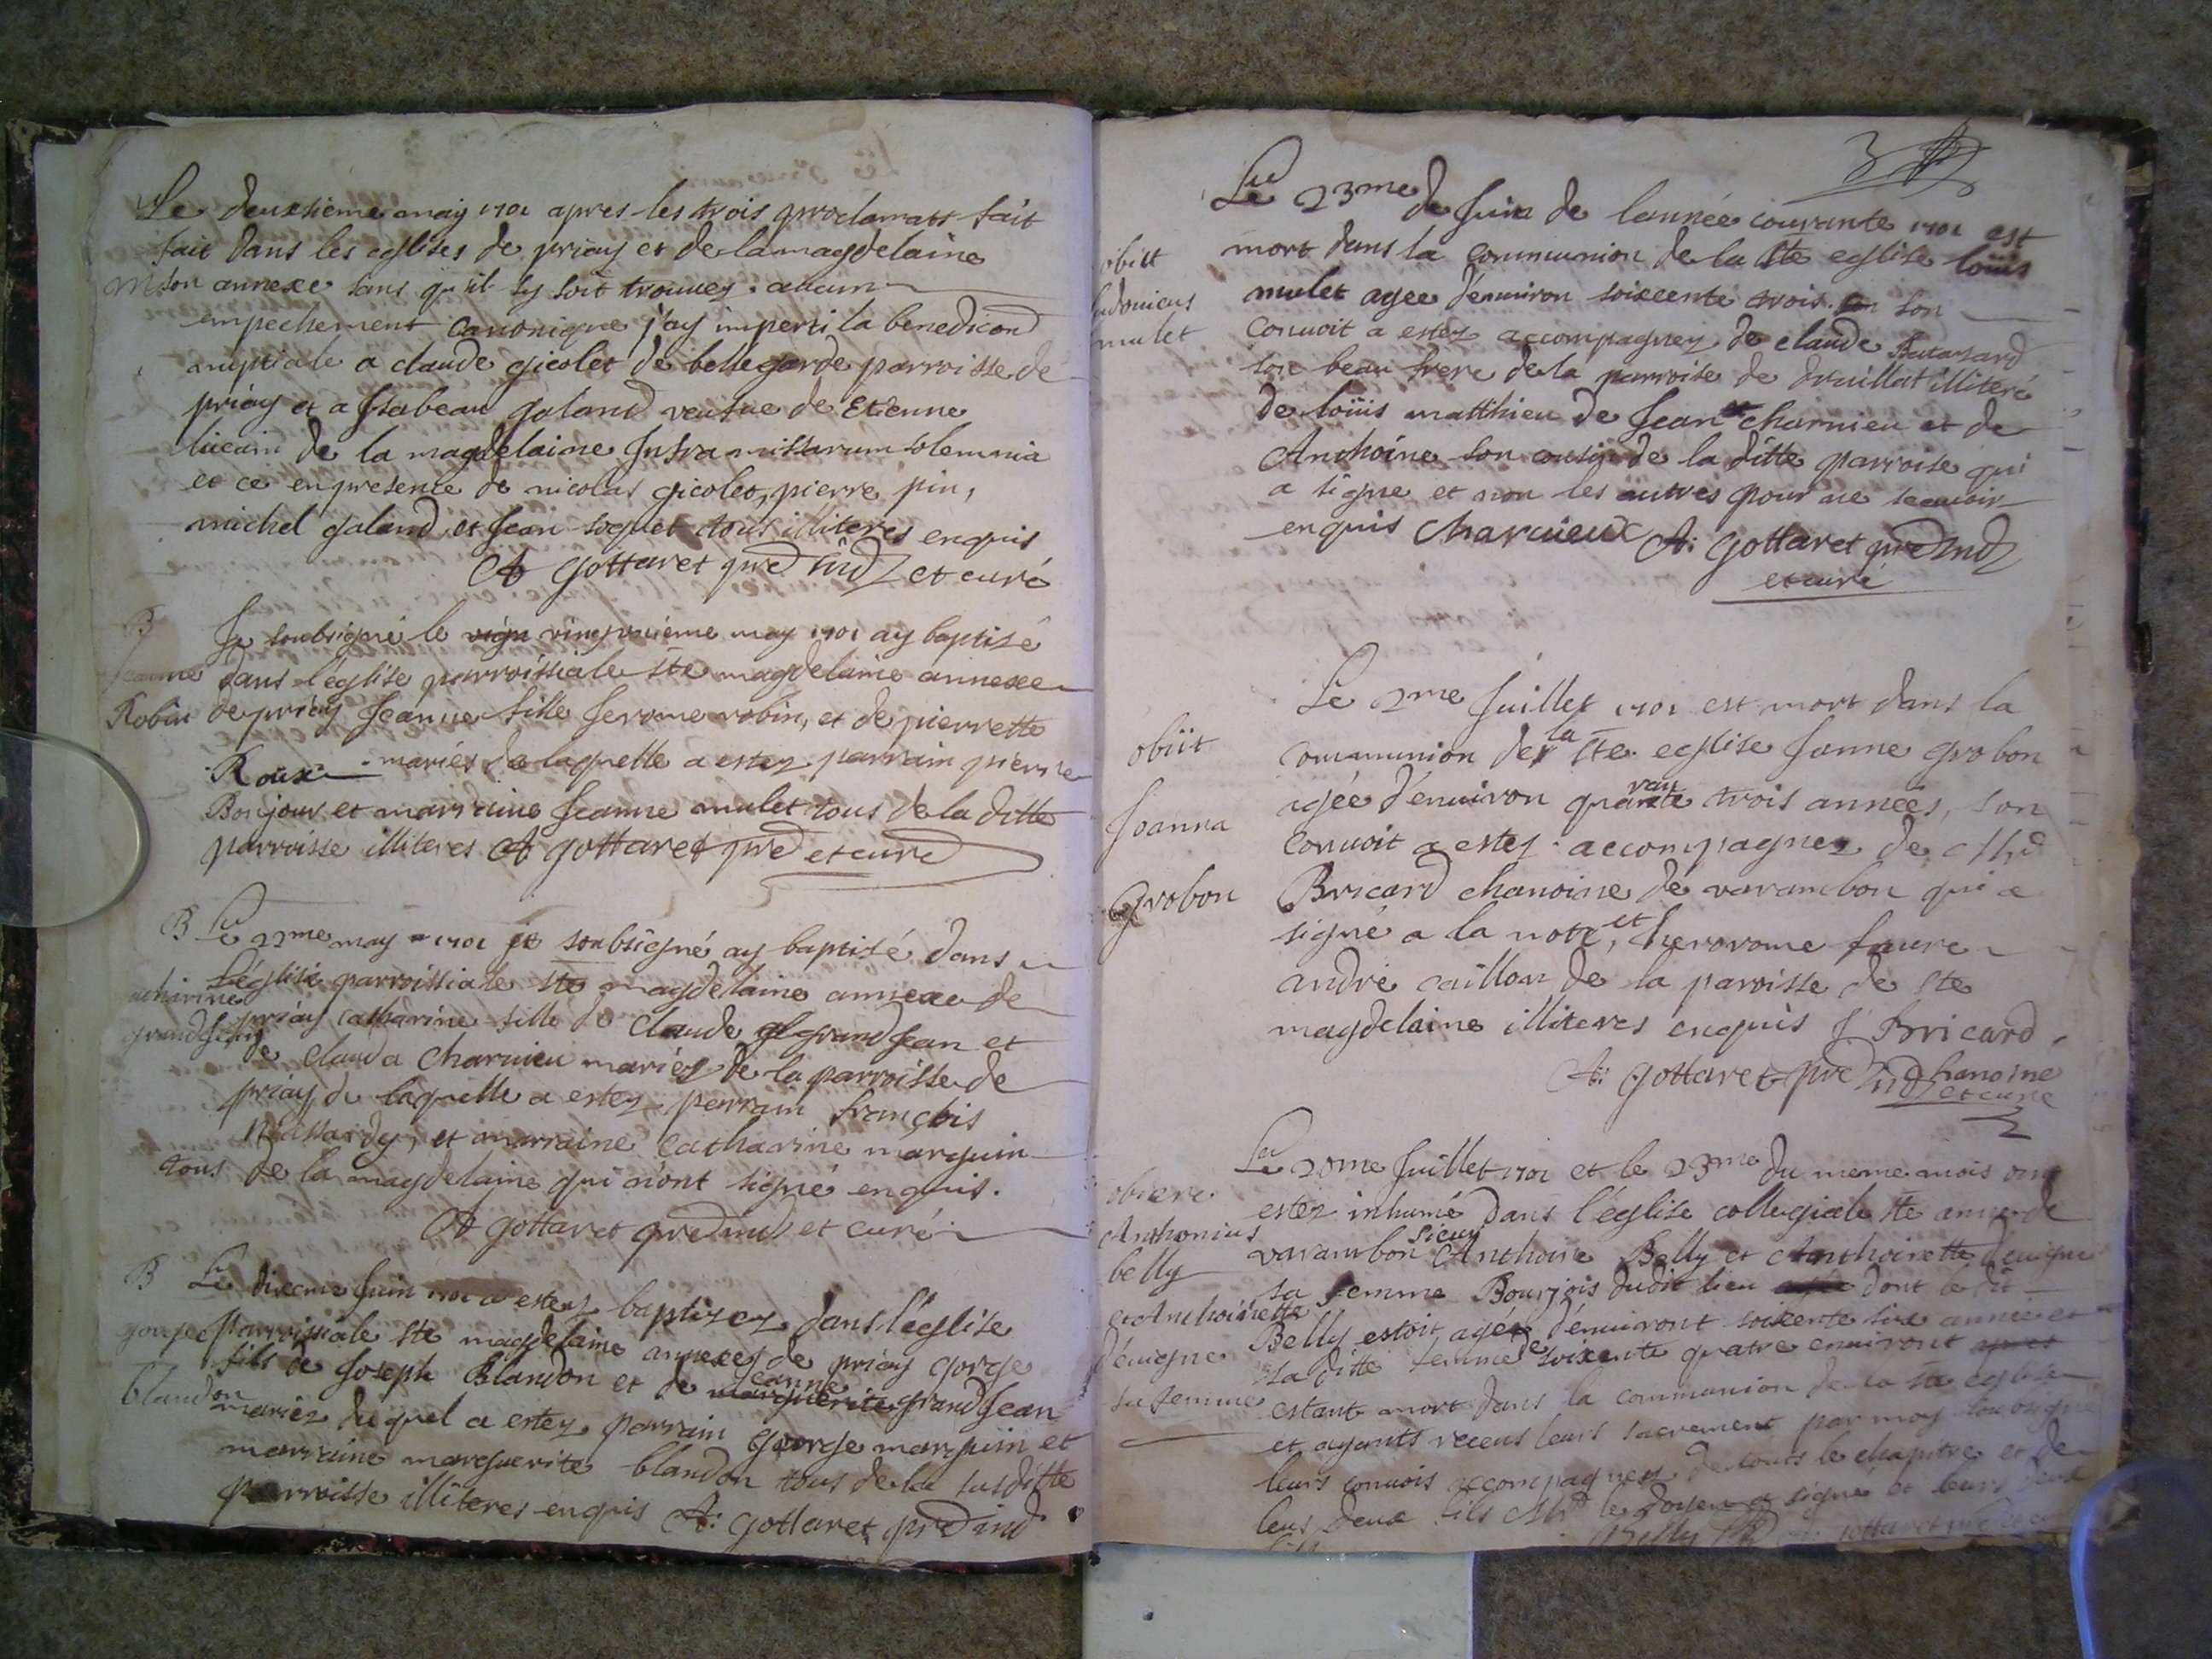 Le deuxsieme may 1701 apres les trois proclamats fait
fait dans les eglises de priay et de la magdelaine
M son annexe sans qu'il sy soit trouvez aucun
empechement canonique j'ay imperti la benedicond
nuptiale a claude gicolet de bellegarde parroisse de
priay et a Isabeau galand veufue de Etienne
de la magdelaine Infra missarum solemnia
et ce en presence de nicolas gicolet, pierre pin,
michel galand, et Jean soquet tous illiteres enquis
A gottaret pre ind et curé
B Je soubsigné le vingt unieme may 1701 ay baptisé
Jeanne dans l'église parroissiale ste magdelaine annexe
Robin de priay Jeanne fille Jerome robin, et de pierrette
Roüx mariés de laquelle a estez parrain pierre
Bonjour et marraine Jeanne mulet tous de la ditte
parroisse illiteres A gottaret pre et curé
B Le 22me may 1701 je soubsigné ay baptisé dans
L'églisse parroissiale ste magdelaine annexe de
catharine priay catharine fille de Claude grand Jean et
grandJean de clauda Charuieu mariez de la parroisse de
priay, de laquelle a estez parrain françois
et marraine Catharine marguin
tous de la magdelaine qui n'ont signé enquis.
A gottaret pre ind et curé
B Le dixeme Juin 1701 a estez baptizez dans l'église
gorge parroissiale ste magdelaine annexez de priay gorge
fils de Joseph Blandon et de Jeanne marguerite grand Jean
blandon mariez duquel a estez parrain george marguin et
marraine marguerite blandon tous de la susditte
parroisse illiteres enquis A: gottaret pre ind
3
Le 23me de Juin de lannée courante 1701 est
obiit mort dans la communion de la ste eglise loüis
ludouicus mulet agee d'enuiron soixcente trois son
mulet conuoit a estez accompagnez de claude
son beau frere de la parroise de druillat illiteré
de loüis matthieu de Jean charuieu et de
Anthoine son cousin de la ditte parroise qui
a signe et non les autres pour ne scauoir
enquis Charuieux A: gottaret pre ind
et curé
Le 2me Juillet 1701 est mort dans la
obiit communion de la ste eglise Janne grobon
Joanna agée d'enuiron quarante trois années, son
conuoit a estez accompagnez de
Grobon Bricard chanoine de varambon qui a
signé a la note, et herorome faure
andré caillon de la paroisse de ste
magdelaine illiteres enquis J Bricard
chanoine
A: gottaret pre ind et curé
Le 20me Juillet 1701 et le 23me du meme mois ont
obiere estez inhumé dans l'église collegiale ste anne de
Anthonius varambon sieur Anthoine Belly et Anthoinette deuigne
belly sa femme Bourjois dudit lieu dont le dit
et Anthoinette Belly estoit agée d'enuiront soixente six annee et
deuigne sa ditte femme de soixente quatre enuiront apres
sa femme estant mort dans la communion de la ste eglise
et ayants receus leurs sacrement par moy sousigné
leurs conuois accompagnez de touts le chapitre et de
leus deux fils le doyen a signé et leurs
Belly gottaret